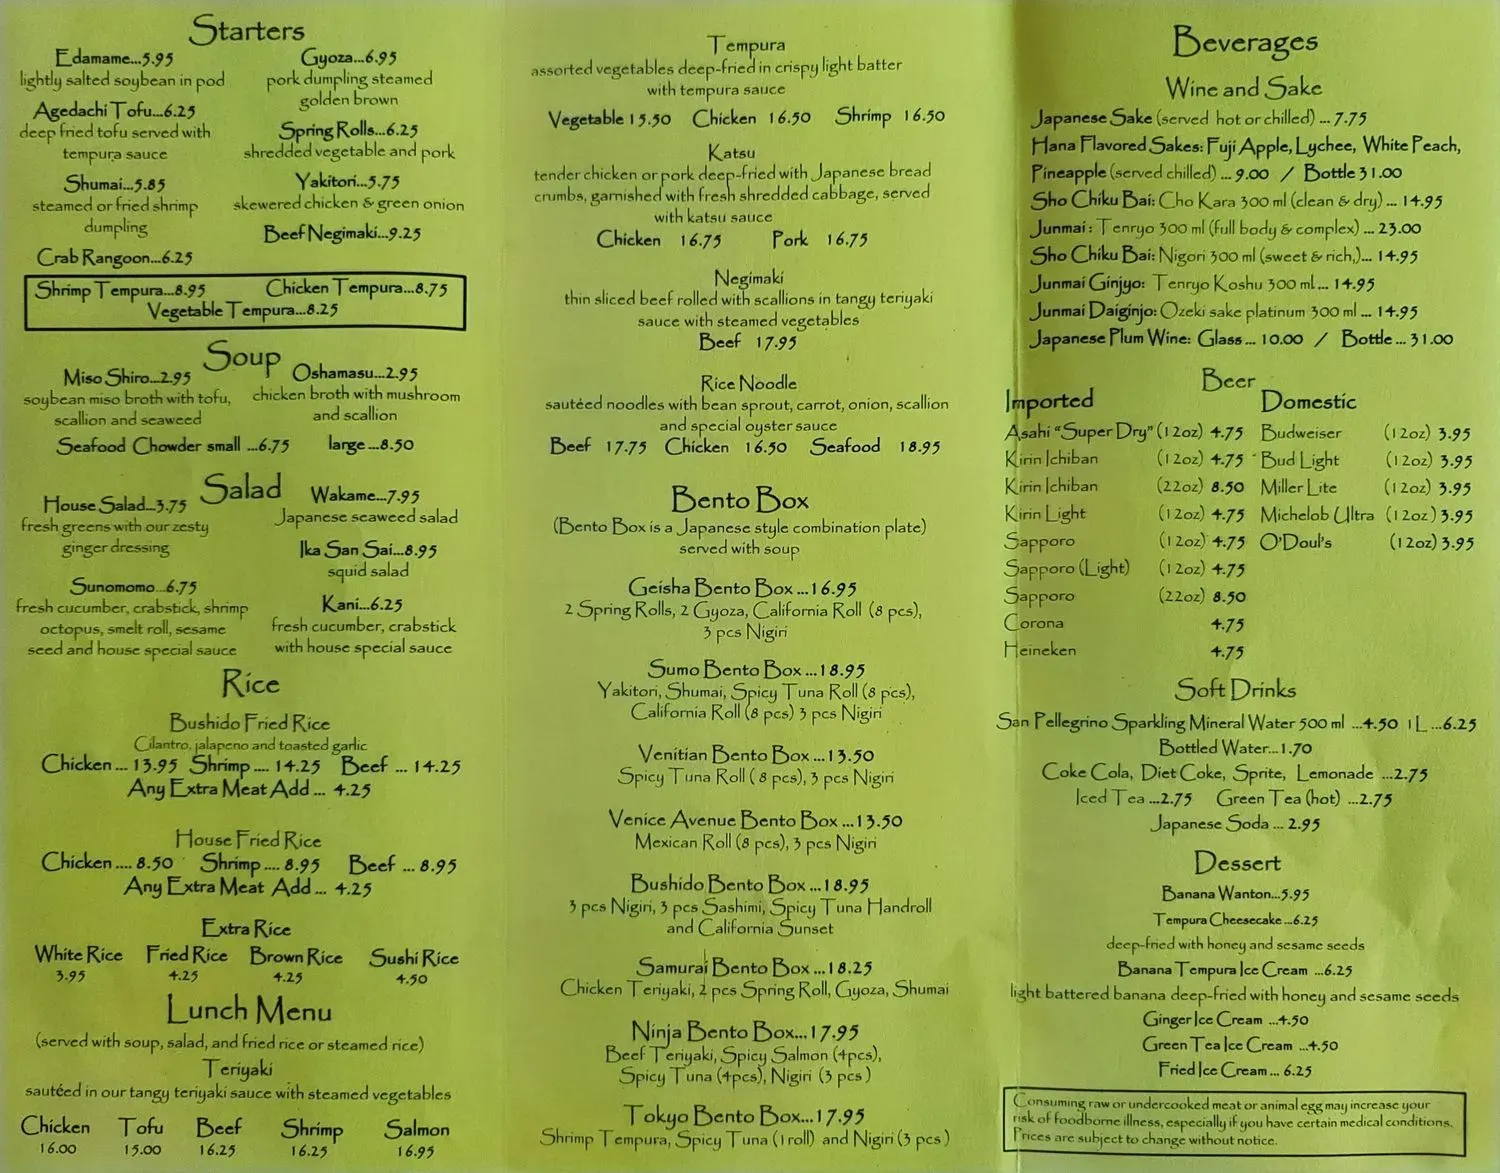 Starters
Edamame...5.95
lightly salted soybean in pod
Agedachi Tofu...6.25
deep fried tofu served with
tempura sauce
Shumai...5.85
steamed or fried shrimp
dumpling
Crab Rangoon...6.25
Gyoza...6.95
pork dumpling steamed
golden brown
Spring Rolls...6.25
shredded vegetable and pork
Yakitori...5.75
skewered chicken & green onion
Beef Negimaki...9.25
Shrimp Tempura...8.95 Chicken Tempura...8.75
Vegetable Tempura...8.25
Soup
Miso Shiro...2.95
soybean miso broth with tofu,
scallion and seaweed
Oshamasu...2.95
chicken broth with mushroom
and scallion
Seafood Chowder small ...6.75 large ...8.50
Salad
House Salad...3.75
fresh greens with our zesty
ginger dressing
Sunomomo...6.75
fresh cucumber, crabstick, shrimp
octopus, smelt roll, sesame
seed and house special sauce
Wakame...7.95
Japanese seaweed salad
Ika San Sai...8.95
squid salad
Kani...6.25
fresh cucumber, crabstick
with house special sauce
Rice
Bushido Fried Rice
Cilantro, jalapeno and toasted garlic
Chicken ... 13.95 Shrimp .... 14.25 Beef ... 14.25
Any Extra Meat Add ... 4.25
House Fried Rice
Chicken .... 8.50 Shrimp .... 8.95 Beef ... 8.95
Any Extra Meat Add ... 4.25
Extra Rice
White Rice Fried Rice Brown Rice Sushi Rice
3.95 4.25 4.25 4.50
Lunch Menu
(served with soup, salad, and fried rice or steamed rice)
Teriyaki
sautéed in our tangy teriyaki sauce with steamed vegetables
Chicken Tofu Beef Shrimp Salmon
16.00 15.00 16.25 16.25 16.95
Tempura
assorted vegetables deep-fried in crispy light batter
with tempura sauce
Vegetable 15.50 Chicken 16.50 Shrimp 16.50
Katsu
tender chicken or pork deep-fried with Japanese bread
crumbs, garnished with fresh shredded cabbage, served
with katsu sauce
Chicken 16.75 Pork 16.75
Negimaki
thin sliced beef rolled with scallions in tangy teriyaki
sauce with steamed vegetables
Beef 17.95
Rice Noodle
sautéed noodles with bean sprout, carrot, onion, scallion
and special oyster sauce
Beef 17.75 Chicken 16.50 Seafood 18.95
Bento Box
(Bento Box is a Japanese style combination plate)
served with soup
Geisha Bento Box ...16.95
2 Spring Rolls, 2 Gyoza, California Roll (8 pcs),
3 pcs Nigiri
Sumo Bento Box ...18.95
Yakitori, Shumai, Spicy Tuna Roll (8 pcs),
California Roll (8 pcs) 3 pcs Nigiri
Venitian Bento Box ...13.50
Spicy Tuna Roll ( 8 pcs), 3 pcs Nigiri
Venice Avenue Bento Box ...13.50
Mexican Roll (8 pcs), 3 pcs Nigiri
Bushido Bento Box ...18.95
3 pcs Nigiri, 3 pcs Sashimi, Spicy Tuna Handroll
and California Sunset
Samurai Bento Box ...18.25
Chicken Teriyaki, 2 pcs Spring Roll, Gyoza, Shumai
Ninja Bento Box...17.95
Beef Teriyaki, Spicy Salmon (4pcs),
Spicy Tuna (4pcs), Nigiri (3 pcs )
Tokyo Bento Box...17.95
Shrimp Tempura, Spicy Tuna (1 roll) and Nigiri (3 pcs )
Beverages
Wine and Sake
Japanese Sake (served hot or chilled) ... 7.75
Hana Flavored Sakes: Fuji Apple, Lychee, White Peach,
Pineapple (served chilled) ... 9.00 / Bottle 31.00
Sho Chiku Bai: Cho Kara 300 ml (clean & dry) ... 14.95
Junmai : Tenryo 300 ml (full body & complex) ... 23.00
Sho Chiku Bai: Nigori 300 ml (sweet & rich,)... 14.95
Junmai Ginjyo: Tenryo Koshu 300 ml ... 14.95
Junmai Daiginjo: Ozeki sake platinum 300 ml ... 14.95
Japanese Plum Wine: Glass ... 10.00 / Bottle ... 31.00
Beer
Imported Domestic
Asahi "Super Dry" (12oz) 4.75 Budweiser (12oz) 3.95
Kirin Ichiban (12oz) 4.75 Bud Light (12oz) 3.95
Kirin Ichiban (22oz) 8.50 Miller Lite (12oz) 3.95
Kirin Light (12oz) 4.75 Michelob Ultra (12oz) 3.95
Sapporo (12oz) 4.75 O'Doul's (12oz) 3.95
Sapporo (Light) (12oz) 4.75
Sapporo (22oz) 8.50
Corona 4.75
Heineken 4.75
Soft Drinks
San Pellegrino Sparkling Mineral Water 500 ml ...4.50 1 L ...6.25
Bottled Water...1.70
Coke Cola, Diet Coke, Sprite, Lemonade ...2.75
Iced Tea ...2.75 Green Tea (hot) ...2.75
Japanese Soda ... 2.95
Dessert
Banana Wanton...5.95
Tempura Cheesecake ...6.25
deep-fried with honey and sesame seeds
Banana Tempura Ice Cream ...6.25
light battered banana deep-fried with honey and sesame seeds
Ginger Ice Cream ...4.50
Green Tea Ice Cream ...4.50
Fried Ice Cream ... 6.25
Consuming raw or undercooked meat or animal egg may increase your
risk of foodborne illness, especially if you have certain medical conditions.
Prices are subject to change without notice.